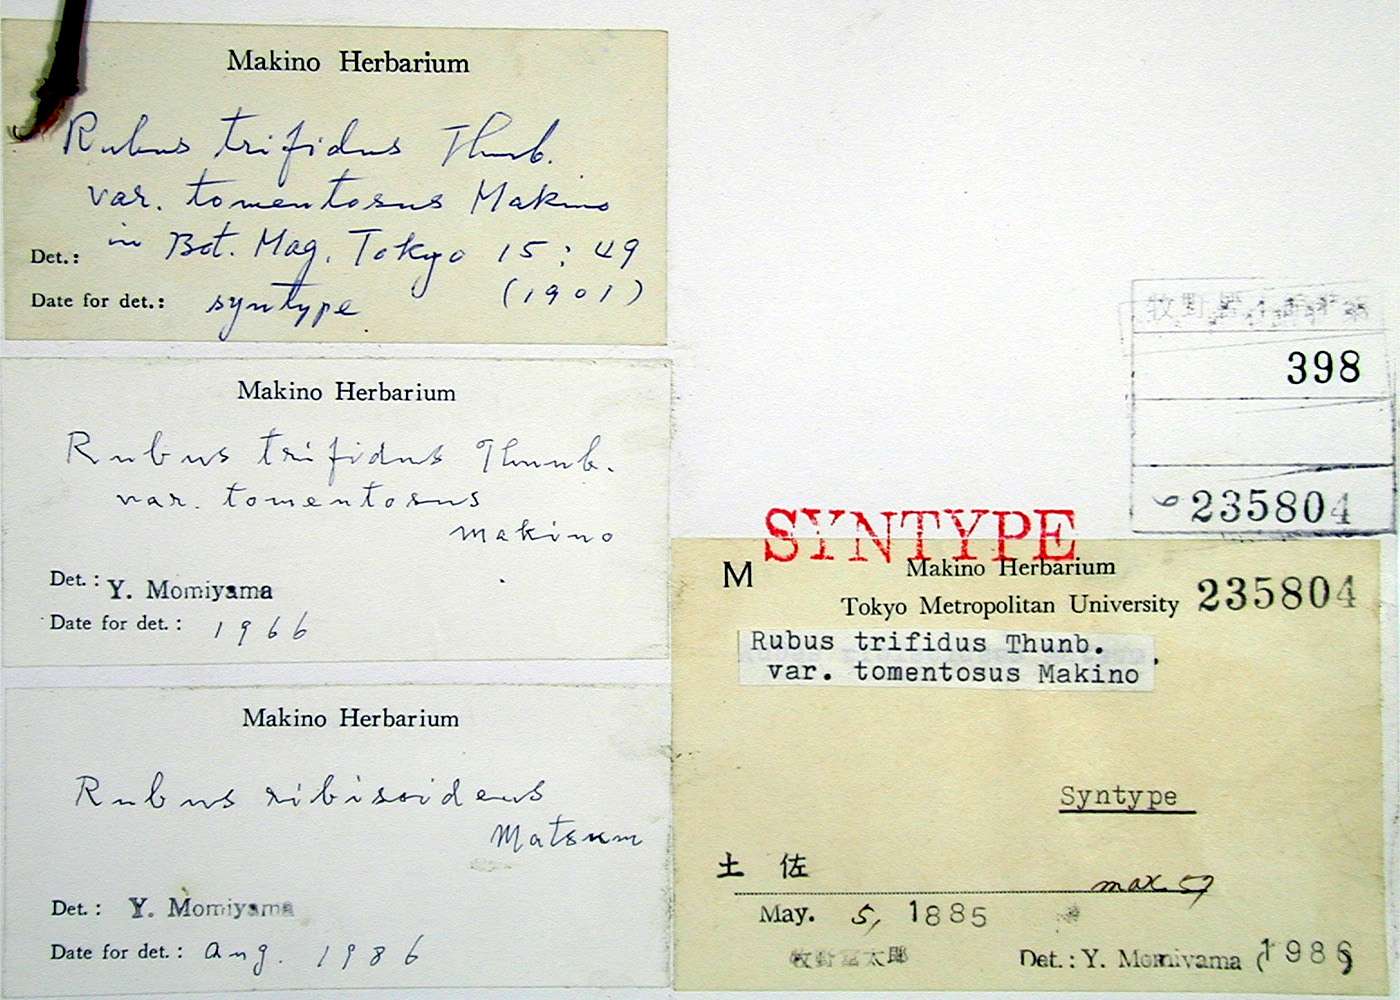 Makino Herbarium
Rubus trifidus Thunb.
var. tomentosus Makino
in Bot. Mag. Tokyo 15 : 49
Det.:
(1901)
Date for det.: syntype
Makino Herbarium
Rubus trifidus Thunb.
var. tomentosus
Makino
Det.: Y. Momiyama
Date for det.: 1966
Makino Herbarium
Rubus ribisoideus
Matsum
Det.: Y. Momiyama
Date for det.: Aug. 1986
牧野
398
235804
SYNTYPE
M
Makino Herbarium
Tokyo Metropolitan University 235804
Rubus trifidus Thunb.
var. tomentosus Makino
Syntype
土 佐
max. 57
May. 5, 1885
牧野富太郎
Det.: Y. Momiyama (1986)